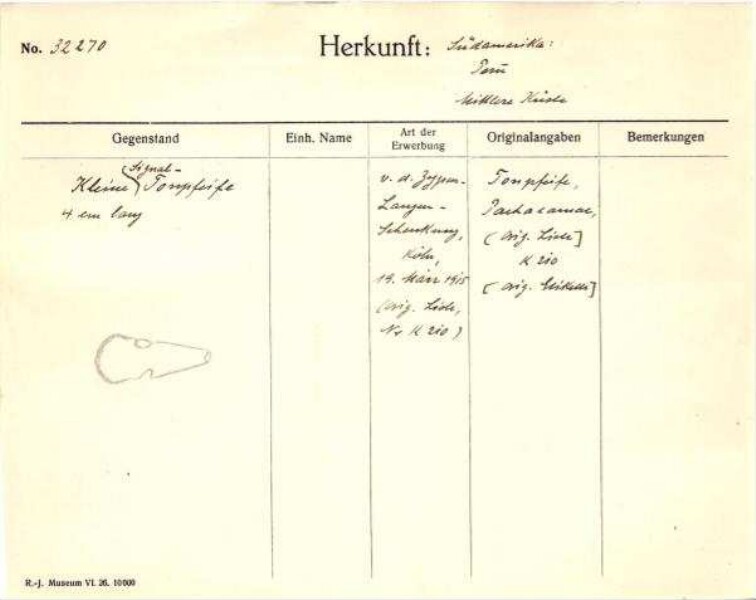 No. 32270
Herkunft: Südamerika:
Perū
Mittlere Küste
Gegenstand
Einh. Name
Art der
Erwerbung
Originalangaben
Bemerkungen
Signal-
Kleine Tonpfeife
4 cm lang
v. d. Zypen-
Langen-
Schenkung,
Köln,
19. März 1915
(orig. Liste,
Nr K 210)
Tonpfeife,
Pachacamac,
(orig. Liste]
K 210
[orig. Etikette]
R.-J. Museum VI. 26. 10000